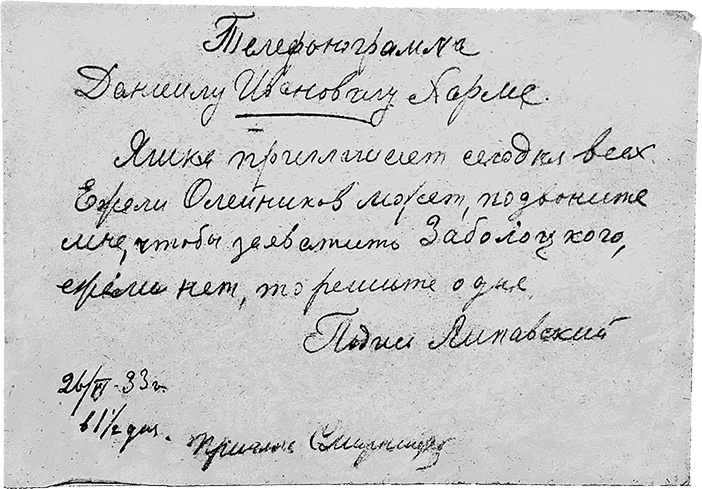 Телефонограмма
Даниилу Ивановичу Хармс.
Яшка приглашает сегодня всех.
Ежели Олейников может, позвоните
мне, чтобы захватить Заболоцкого,
ежели нет, то решите о дне.
Липавский
26/ 33 г.
в 1 1/2 дня.